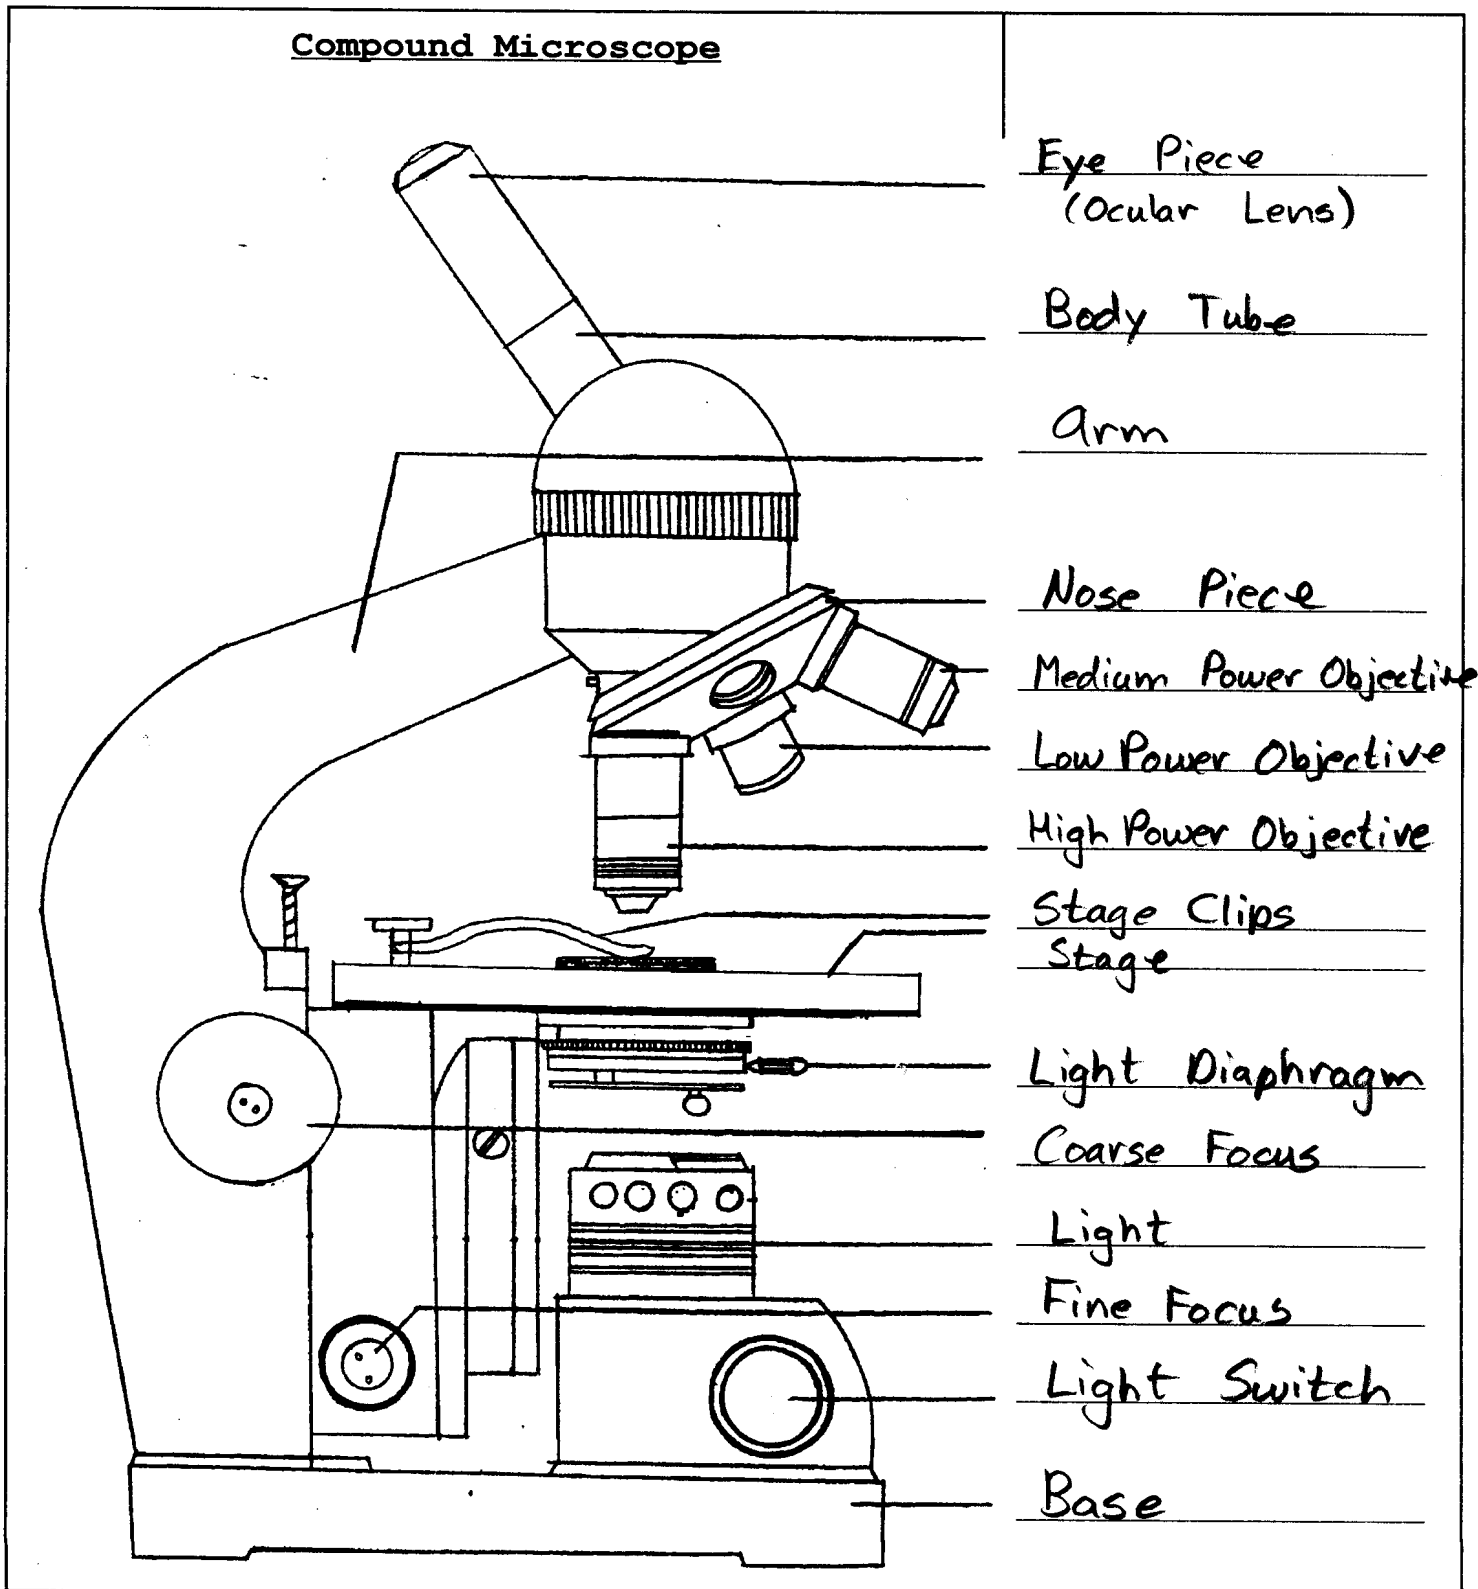 Compound Microscope
Eye Piece
(Ocular Lens)
Body Tube
arm
Nose Piece
Medium Power Objective
Low Power Objective
High Power Objective
Stage Clips
Stage
Light Diaphragm
Coarse Focus
Light
Fine Focus
Light Switch
Base